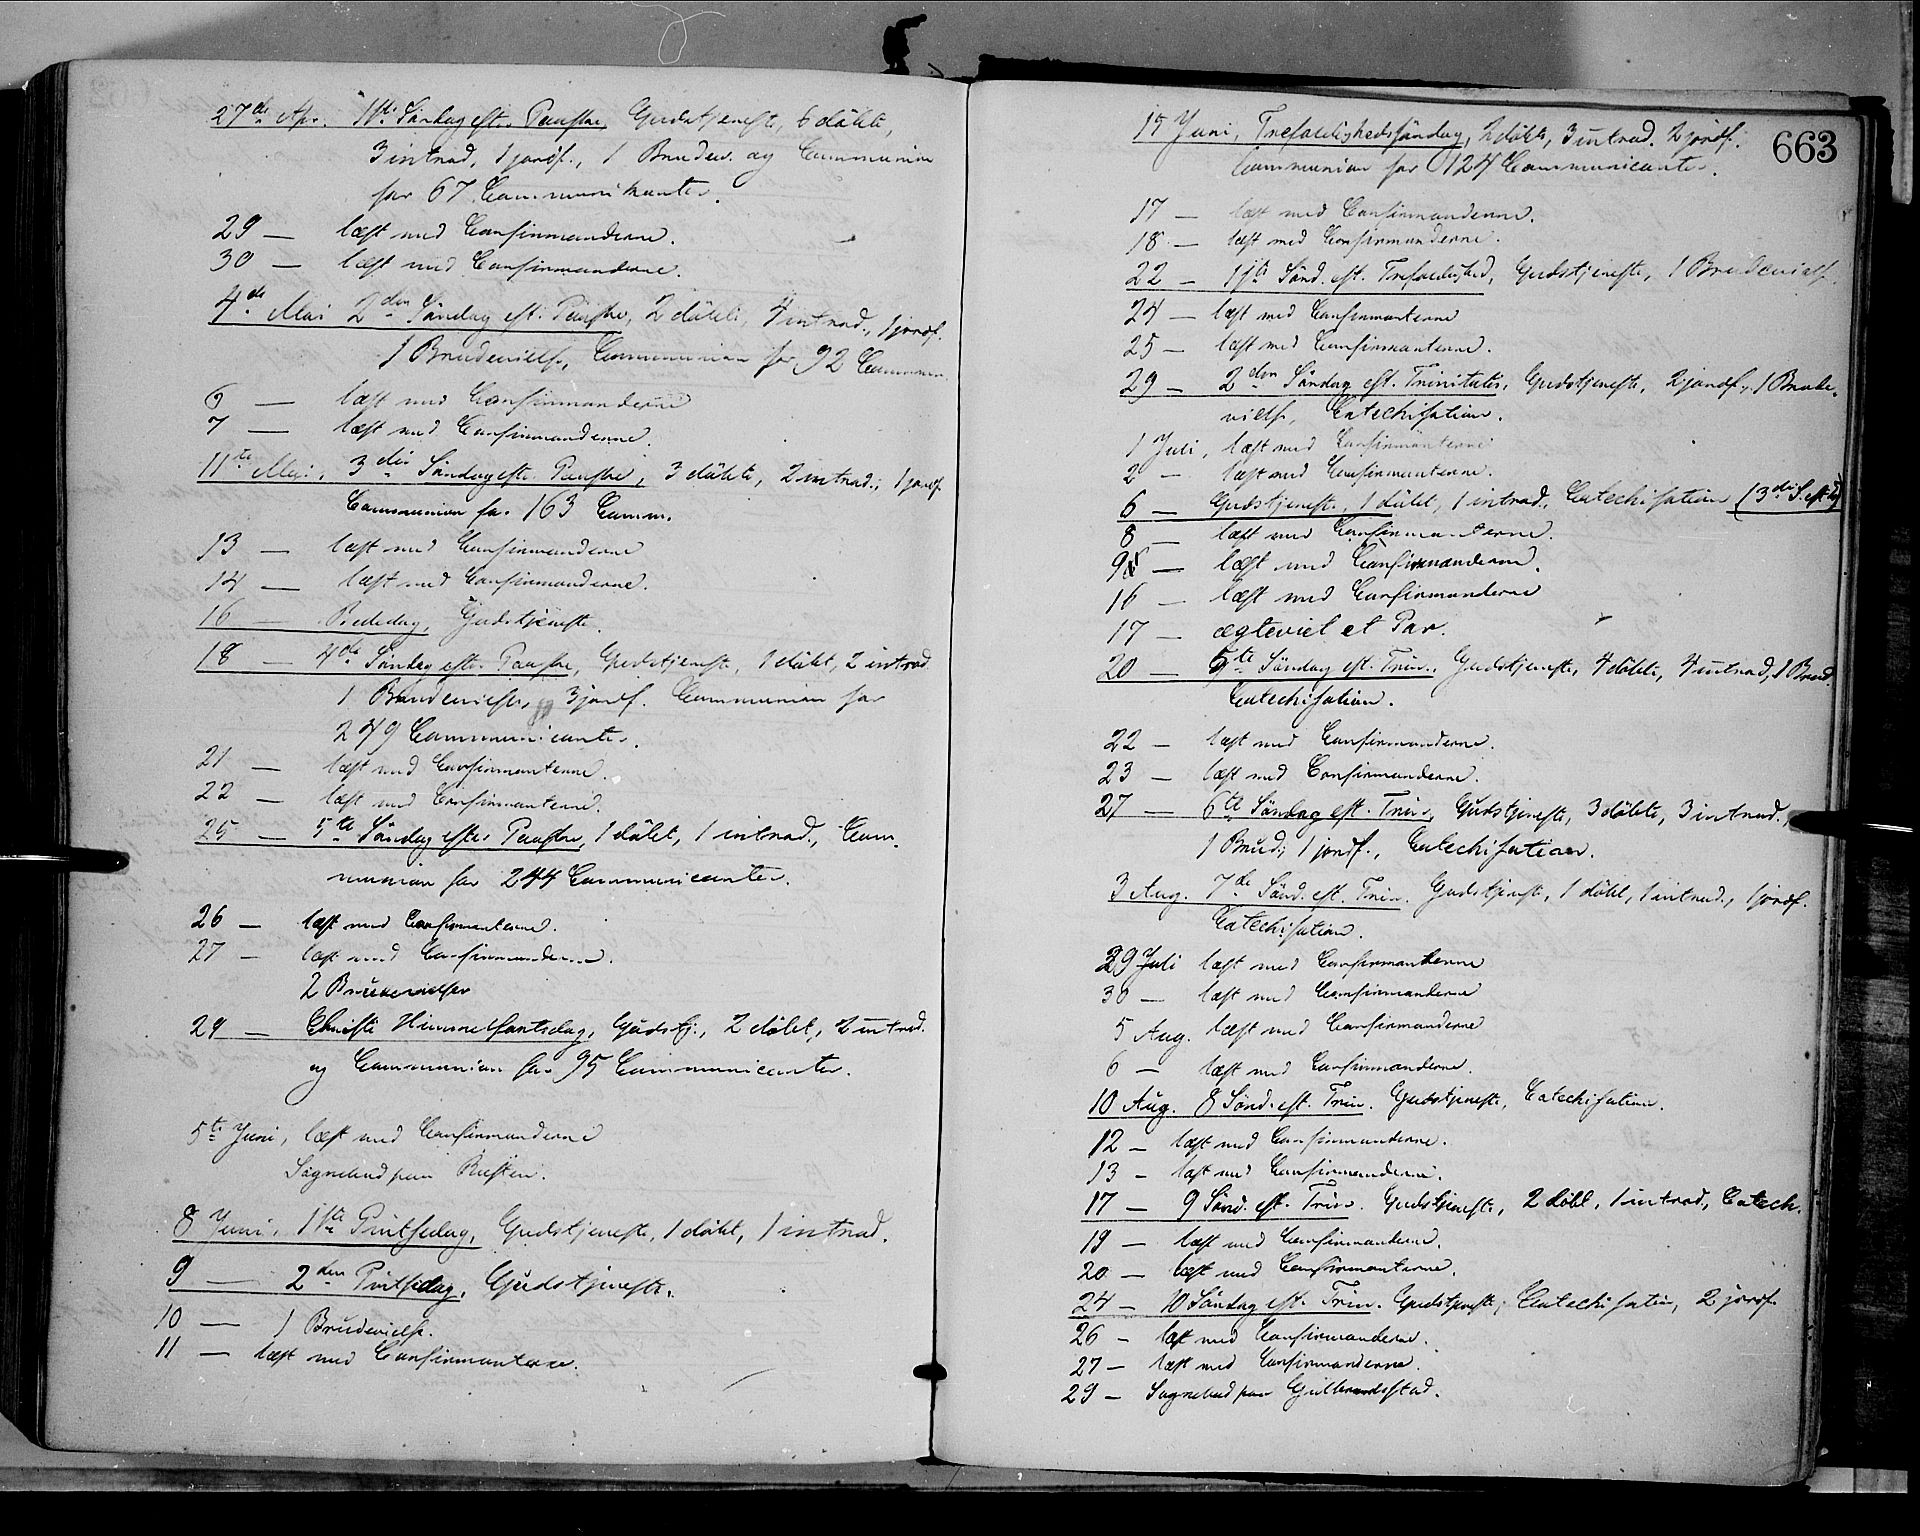 27de Apr. 1ste Søndag eft. Paaske, Gudstjeneste, 6 døbte,
3 introd, 1 jordf., 1 Brudev. og Communion
for 67 Communikanter.
29 — læst med Confirmanderne.
30 — læst med Confirmanderne.
4de Mai 2den Søndag eft. Paaske, 2 døbte, 4 introd., 1 jordf.
1 Brudevielse, Communion for 92 Commun.
6 — læst med Confirmanderne
7 — læst med Confirmanderne.
11te Mai, 3die Søndag eft. Paaske, 3 døbte, 2 introd., 1 jordf.
Communion for 163 Comm.
13 — læst med Confirmanderne
14 — læst med Confirmanderne.
16 — Bededag, Gudstjeneste.
18 — 4de Søndag efter Paaske, Gudstjeneste, 1 døbt, 2 introd.
1 Brudevielse, 3 jordf. Communion for
249 Communicanter.
21 — læst med Confirmanterne.
22 — læst med Confirmanterne.
25 — 5te Søndag efter Paaske, 1 døbt, 1 introd., Com-
munion for 244 Communicanter.
26 — læst med Confirmanterne.
27 — læst med Confirmanderne.
2 Brudevielser
29 — Christi Himmelfartsdag, Gudstj., 2 døbt, 2 introd.
og Communion for 95 Communicanter.
5te Juni, læst med Confirmanderne
Sognebud paa Rusten.
8 Juni, 1ste Pintsedag, Gudstjeneste, 1 døbt, 1 introd.
9 — 2den Pintsedag, Gudstjeneste.
10 — 1 Brudevielse.
11 — læst med Confirmanterne.
663
15 Juni, Trefoldighedssøndag, 2 døbte, 3 introd. 2 jordf.
Communion for 124 Communicanter.
17 — læst med Confirmanderne.
18 — læst med Confirmanderne.
22 — 1ste Sønd. eft. Trefoldighed, Gudstjeneste, 1 Brudevielse.
24 — læst med Confirmanterne
25 — læst med Confirmanterne.
29 — 2den Søndag eft. Trinitatis, Gudstjeneste, 2 jordf., 1 Brude-
vielse, Catechisation.
1 Juli, læst med Confirmanterne
2 — læst med Confirmanterne.
6 — Gudstjeneste, 1 døbt, 1 introd., Catechisation (3die S. eft. T.)
8 — læst med Confirmanderne.
9 — læst med Confirmanderne.
16 — læst med Confirmanderne
17 — ægteviet et Par.
20 — 5te Søndag eft. Trin., Gudstjeneste, 4 døbte, 4 introd, 1 Brud.
Catechisation.
22 — læst med Confirmanderne.
23 — læst med Confirmanderne.
27 — 6te Søndag eft. Trin, Gudstjeneste, 3 døbte, 3 introd.,
1 Brud., 1 jordf., Catechisation.
3 Aug. 7de Sønd. eft. Trin. Gudstjeneste, 1 døbt, 1 introd., 1 jordf.
Catechisation.
29 Juli læst med Confirmanterne
30 — læst med Confirmanderne
5 Aug. læst med Confirmanderne
6 — læst med Confirmanderne.
10 Aug. 8 Sønd. eft. Trin. Gudstjeneste, Catechisation.
12 — læst med Confirmanderne.
13 — læst med Confirmanderne.
17 — 9 Sønd. eft. Trin. Gudstjeneste, 2 døbt, 1 introd., Catech.
19 — læst med Confirmanderne.
20 — læst med Confirmanterne.
24 — 10 Søndag eft. Trin. Gudstjeneste, Catechisation, 2 jordf.
26 — læst med Confirmanderne.
27 — læst med Confirmanderne.
29 — Sognebud paa Gulbrandsstad.